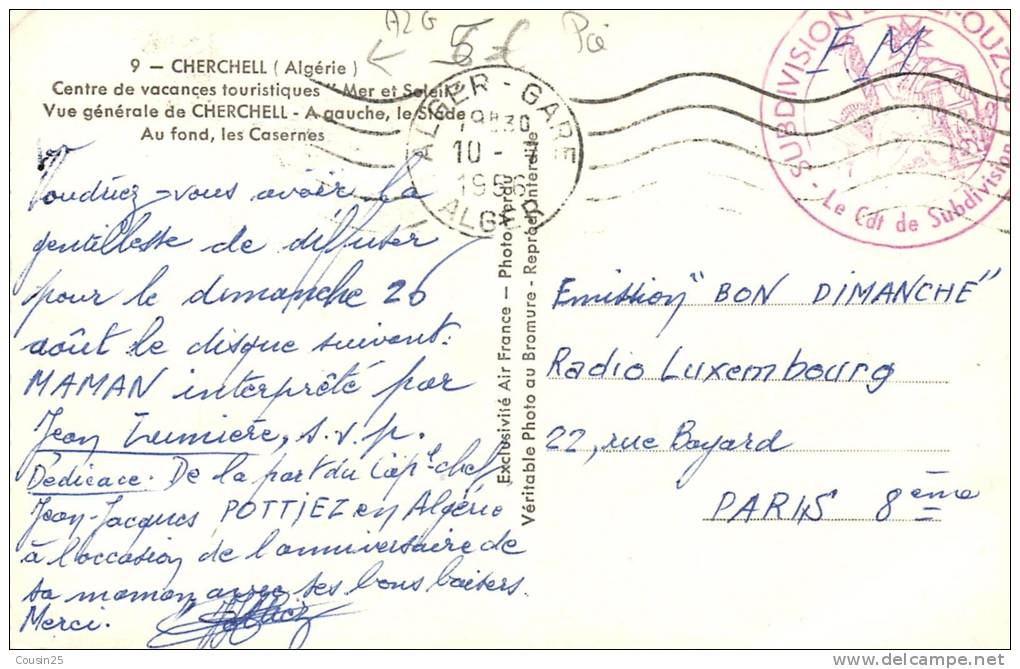 A2G
5 €
9 — CHERCHELL ( Algérie )
Centre de vacances touristiques " Mer et Soleil
Vue générale de CHERCHELL - A gauche, le Stade
Au fond, les Casernes
ALGER - GARE
10 -
ALGER
SUBDIVISION
- Le Cdt de Subdivision
F.M
Voudriez-vous avoir la
gentillesse de diffuser
pour le dimanche 26
août le disque suivant:
MAMAN interprêté par
Jean Lumière, s.v.p.
Dédicace. De la part du Cap^l chef
Jean-Jacques POTTIEZ en Algérie
à l'occasion de l'anniversaire de
sa maman avec ses bons baisers.
Merci.
Exclusivité Air France — Photo
Véritable Photo au Bromure - Reproduction interdite
Emission "BON DIMANCHE"
Radio Luxembourg
22, rue Bayard
PARIS 8ème
Cousin25
www.delcampe.net